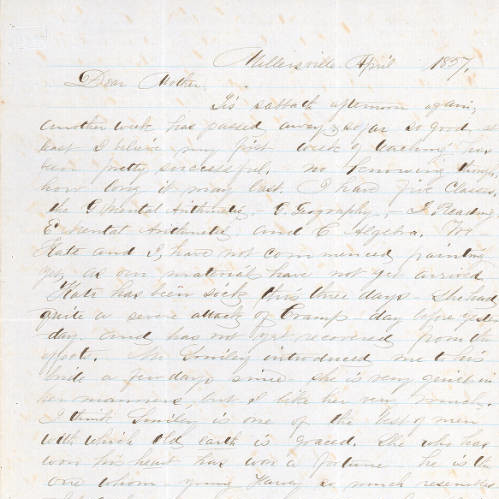 Millersville April 1857,
Dear Mother.
Tis sabbath afternoon again,
another week has passed away & so far so good, at
least I believe my first week of teaching has
been pretty successful. no knowing though,
how long it may last. I have five Classes
the G Mental Arithmetic, C. Geography, I Reading
E Mental Arithmetic and C Algebra. We
Kate and I, have not commenced painting
yet, as our material have not yet arrived
Kate has been sick this three days. She had
quite a severe attack of Cramp day before yester
day. and has not yet recovered from the
effects. Mr. Smiley introduced me to his
bride a few days since. She is very quiet in
her manners, but I like her very much.
I think Smiley is one of the best of men
with which old earth is graced. She who has
won his heart has won a fortune he is the
one whom young Harvy so much resembles